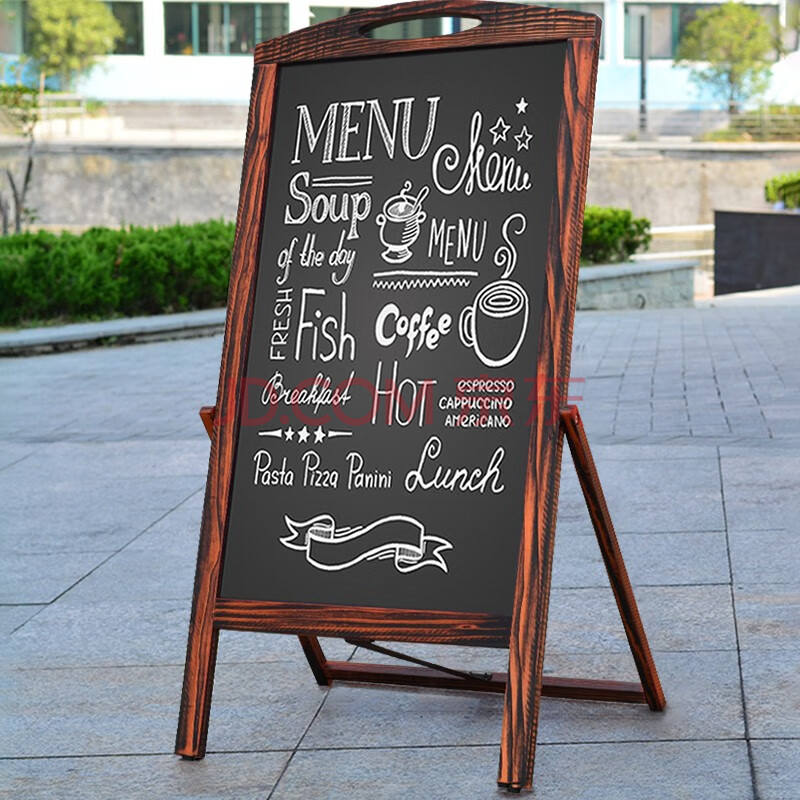 MENU
Menu
Soup
of the day
MENU
FRESH
Fish
Coffee
Breakfast
HOT
ESPRESSO
CAPPUCCINO
AMERICANO
Pasta Pizza Panini
Lunch
JD.COM 京东